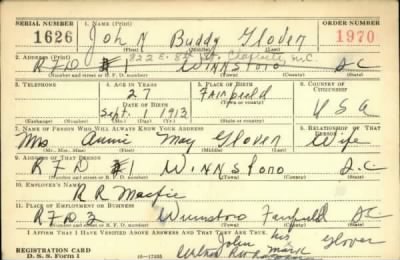 SERIAL NUMBER 1. NAME (Print) ORDER NUMBER
1626 John Buddy Glover 1970
(First) (Middle) (Last)
2. ADDRESS (Print) 822 E. 8th St.
R F D # Winnsboro S C
(Number and street or R. F. D. number) (Town) (County) (State)
3. TELEPHONE 4. AGE IN YEARS 5. PLACE OF BIRTH 6. COUNTRY OF CITIZENSHIP
27 Fairfield
DATE OF BIRTH (Town or county)
Sept. 1 1913 U S A
(Exchange) (Number) (Mo.) (Day) (Yr.) (State or country)
7. NAME OF PERSON WHO WILL ALWAYS KNOW YOUR ADDRESS 8. RELATIONSHIP OF THAT PERSON
Mrs Annie May Glover Wife
(Mr., Mrs., Miss) (First) (Middle) (Last)
9. ADDRESS OF THAT PERSON
R F D #1 Winnsboro S.C.
(Number and street or R. F. D. number) (Town) (County) (State)
10. EMPLOYER'S NAME
R R Macfie
11. PLACE OF EMPLOYMENT OR BUSINESS
R F D 3 Winnsboro Fairfield S C
(Number and street or R. F. D. number) (Town) (County) (State)
I AFFIRM THAT I HAVE VERIFIED ABOVE ANSWERS AND THAT THEY ARE TRUE.
John his Glover
mark
REGISTRATION CARD
D. S. S. Form 1 16—17105